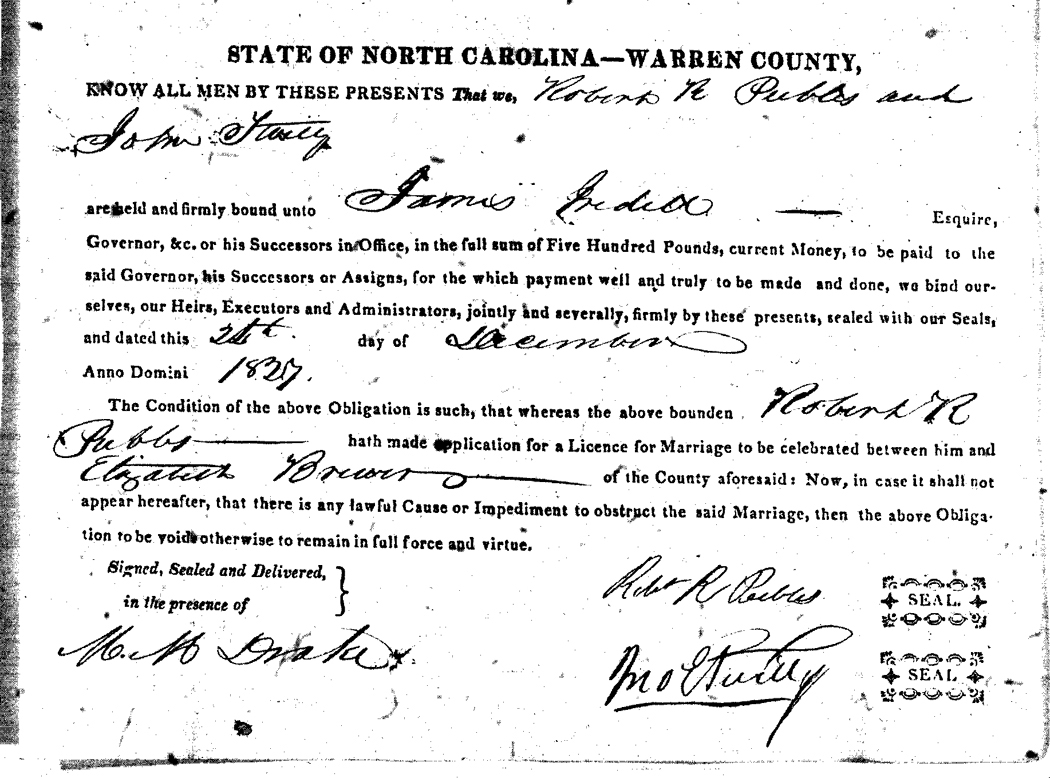 STATE OF NORTH CAROLINA—WARREN COUNTY,
KNOW ALL MEN BY THESE PRESENTS That we, Robert R Peebles and
John
are held and firmly bound unto James Iredell — Esquire,
Governor, &c. or his Successors in Office, in the full sum of Five Hundred Pounds, current Money, to be paid to the
said Governor, his Successors or Assigns, for the which payment well and truly to be made and done, we bind our-
selves, our Heirs, Executors and Administrators, jointly and severally, firmly by these presents, sealed with our Seals,
and dated this day of December
Anno Domini 1827.
The Condition of the above Obligation is such, that whereas the above bounden Robert R
Peebles hath made application for a Licence for Marriage to be celebrated between him and
Elizabeth Brewer of the County aforesaid: Now, in case it shall not
appear hereafter, that there is any lawful Cause or Impediment to obstruct the said Marriage, then the above Obliga-
tion to be void otherwise to remain in full force and virtue.
Signed, Sealed and Delivered,
in the presence of
Robt R Peebles SEAL.
M. M Drake
Jno E SEAL